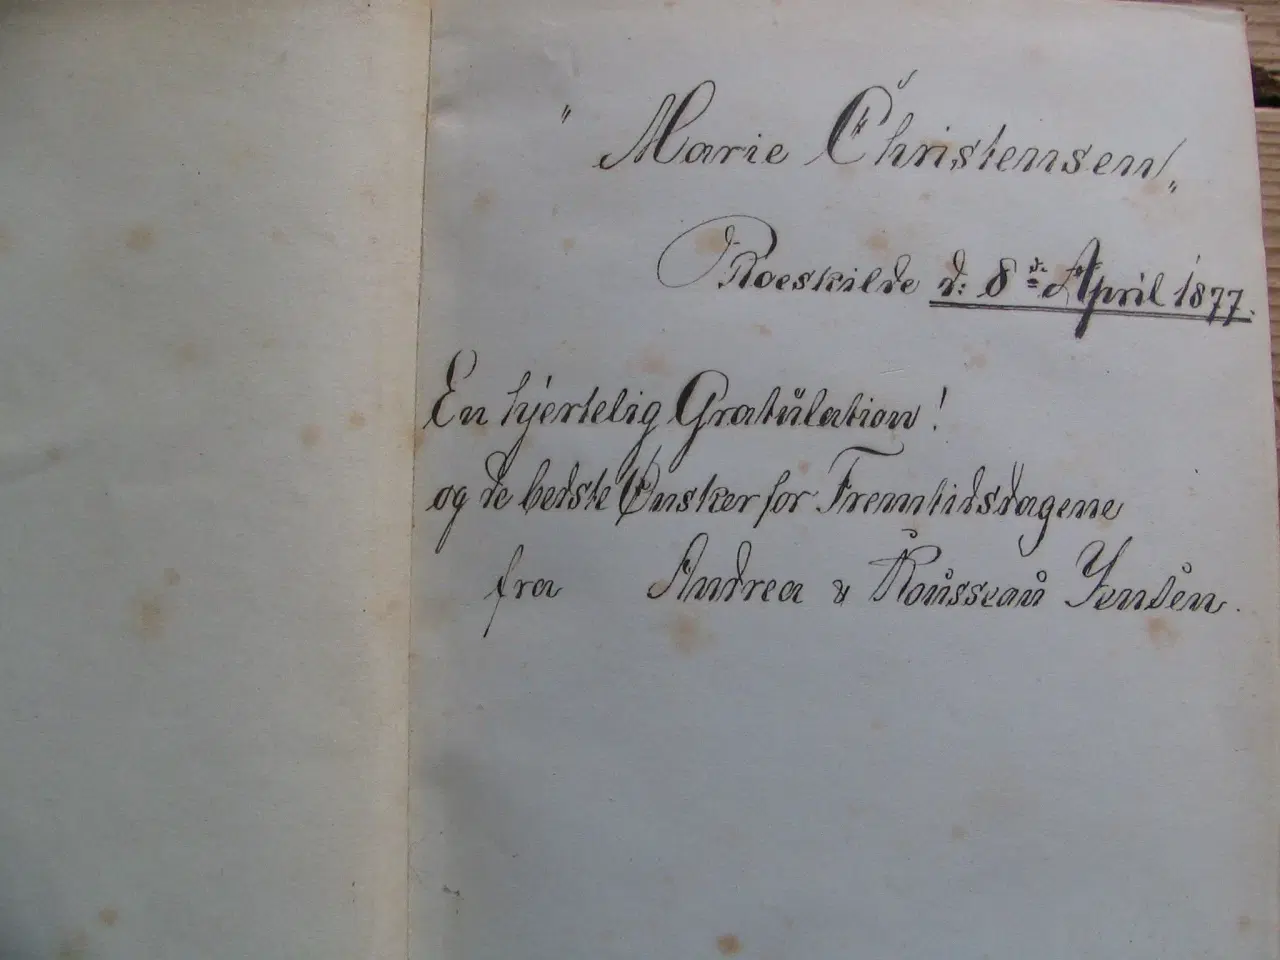 " Marie Christensen "
Roeskilde d: 8de April 1877.
En hjertelig Gratulation!
og de bedste Ønsker for Fremtidsdagene
fra Andrea & Rousseau